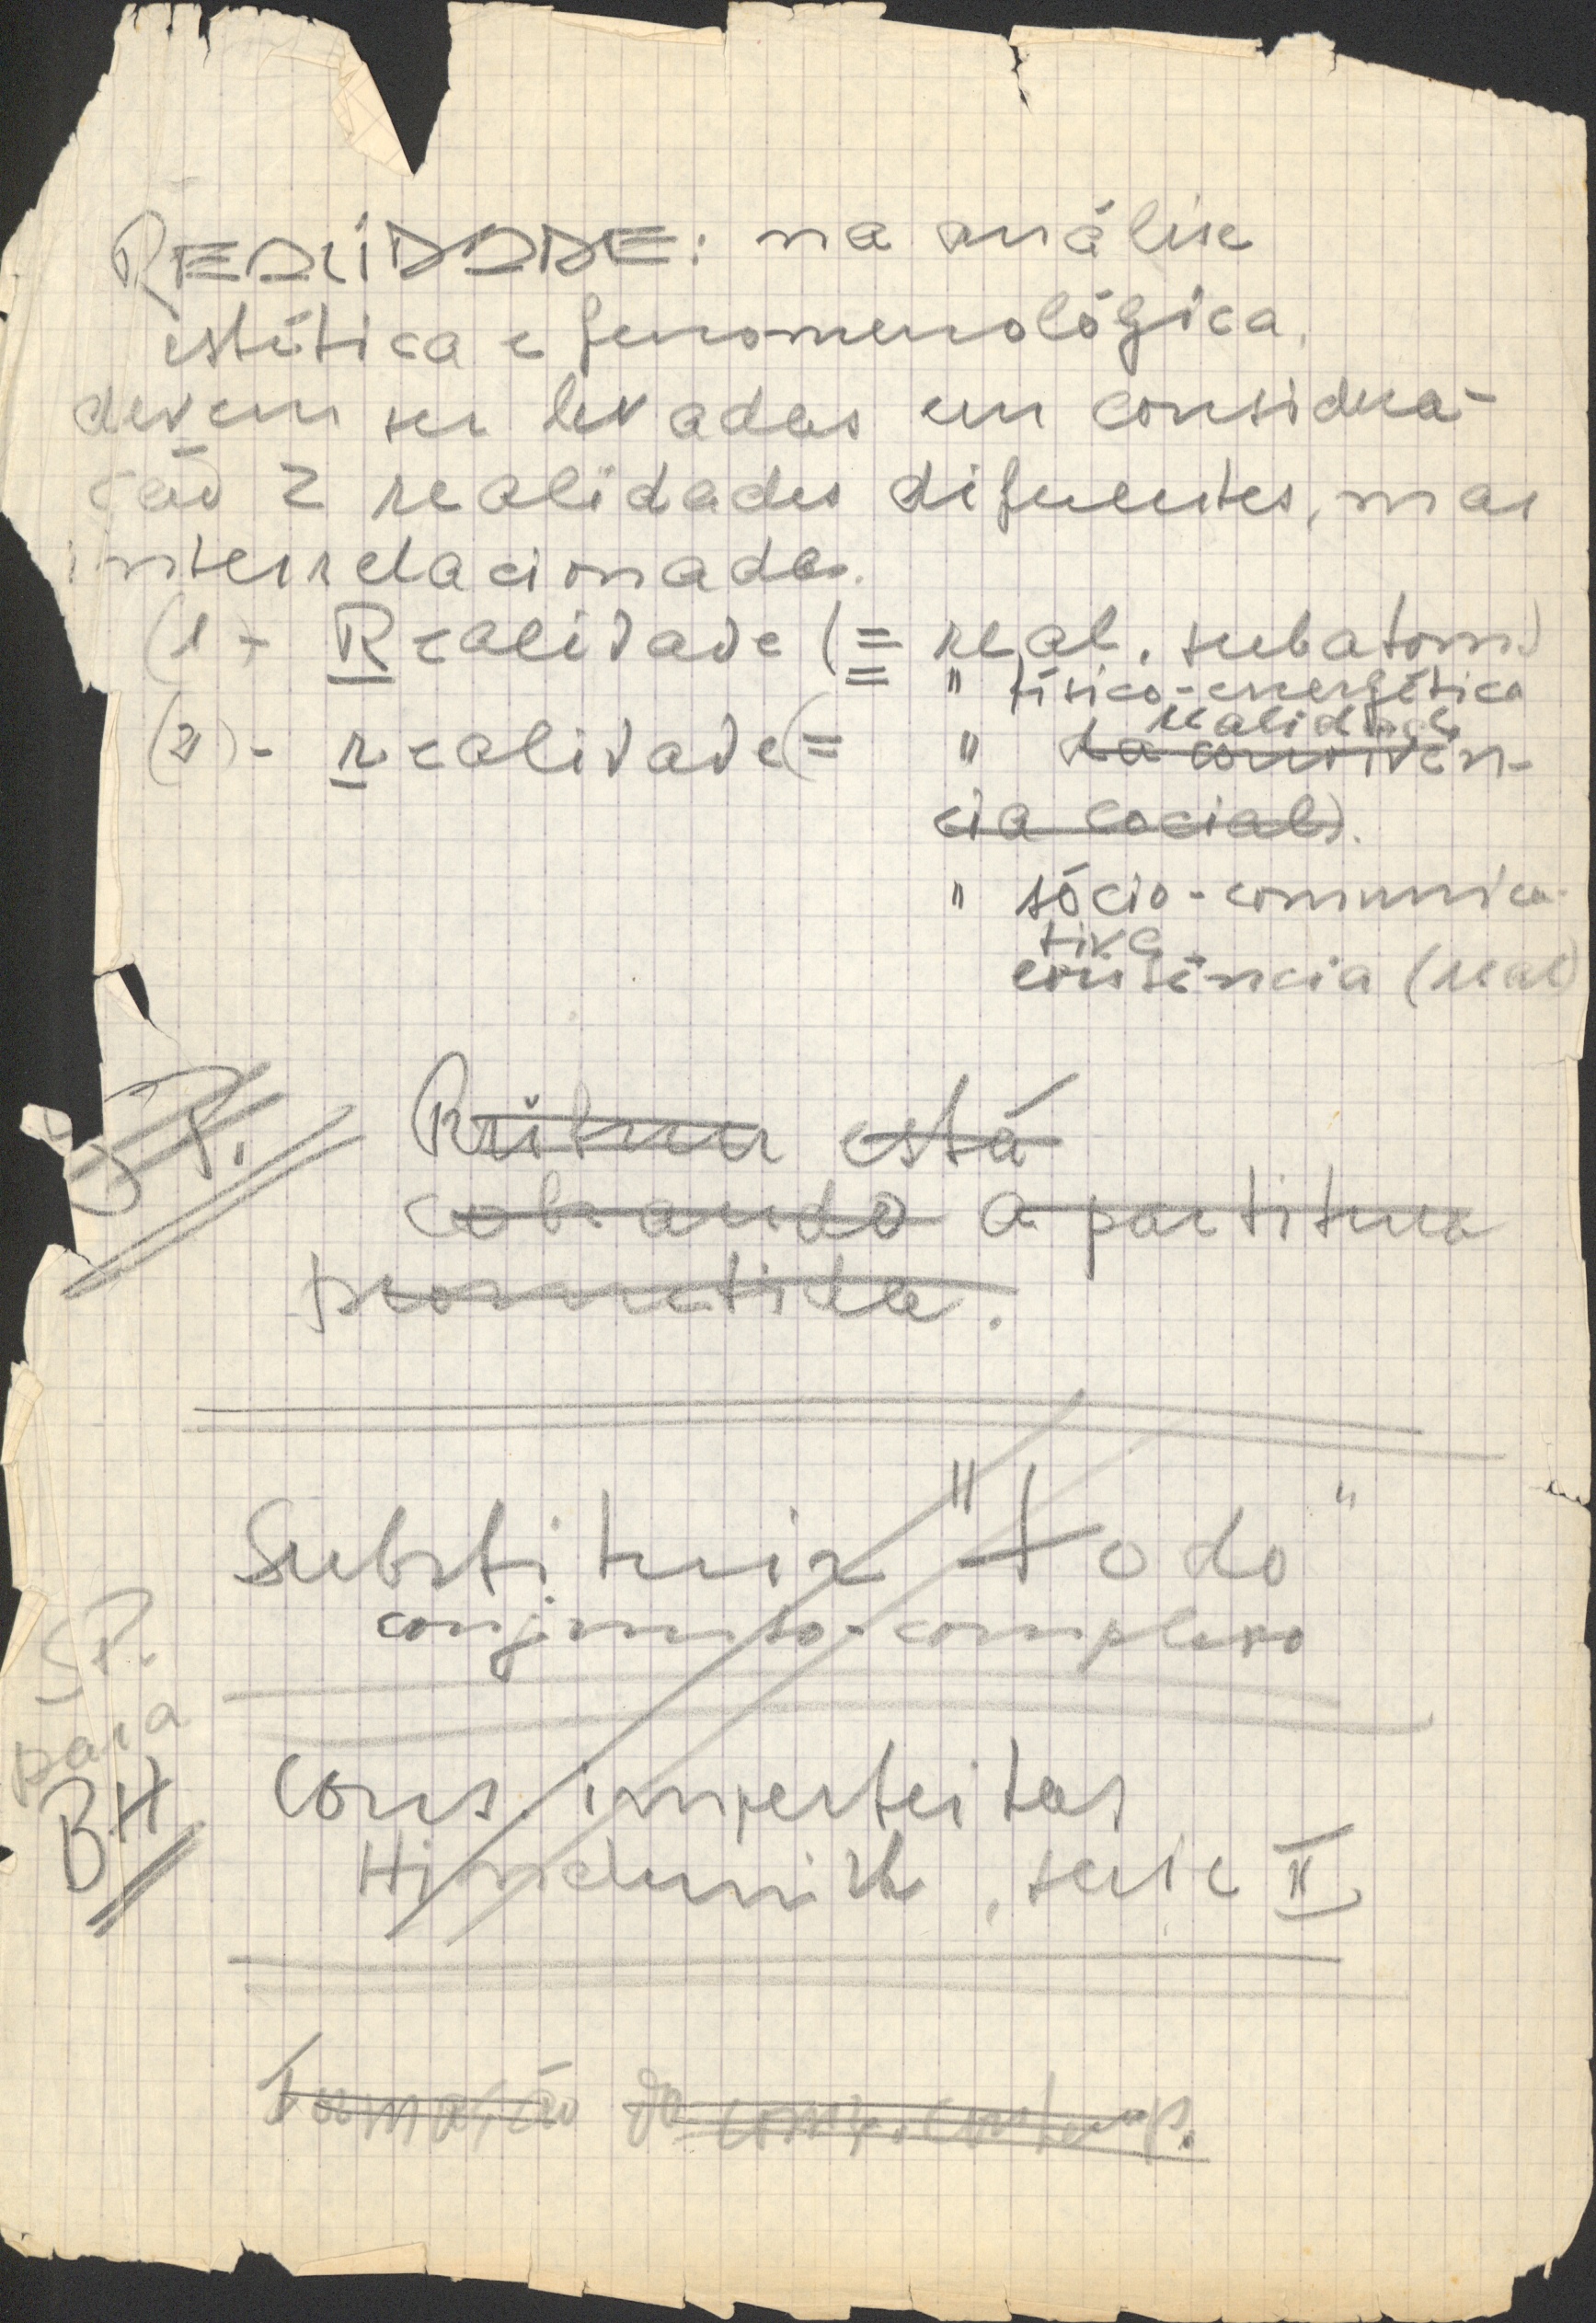 REALIDADE: na análise
estética e fenomenológica,
devem ser levadas em considera-
ção 2 realidades diferentes, mas
interrelacionadas.
(1) - Realidade (= real. subatom.)
= " físico-energética
(2) - realidade (= " realidade
da convivên-
cia social).
" sócio-comunica-
tiva
existência (real)
S.P.
está
cobrando a partitura
prometida.
Substituir "todo"
conjunto-complexo
SP.
para
BH
cons. imperfeitas
Hindemith, serie II
Formação do comp. contemp.